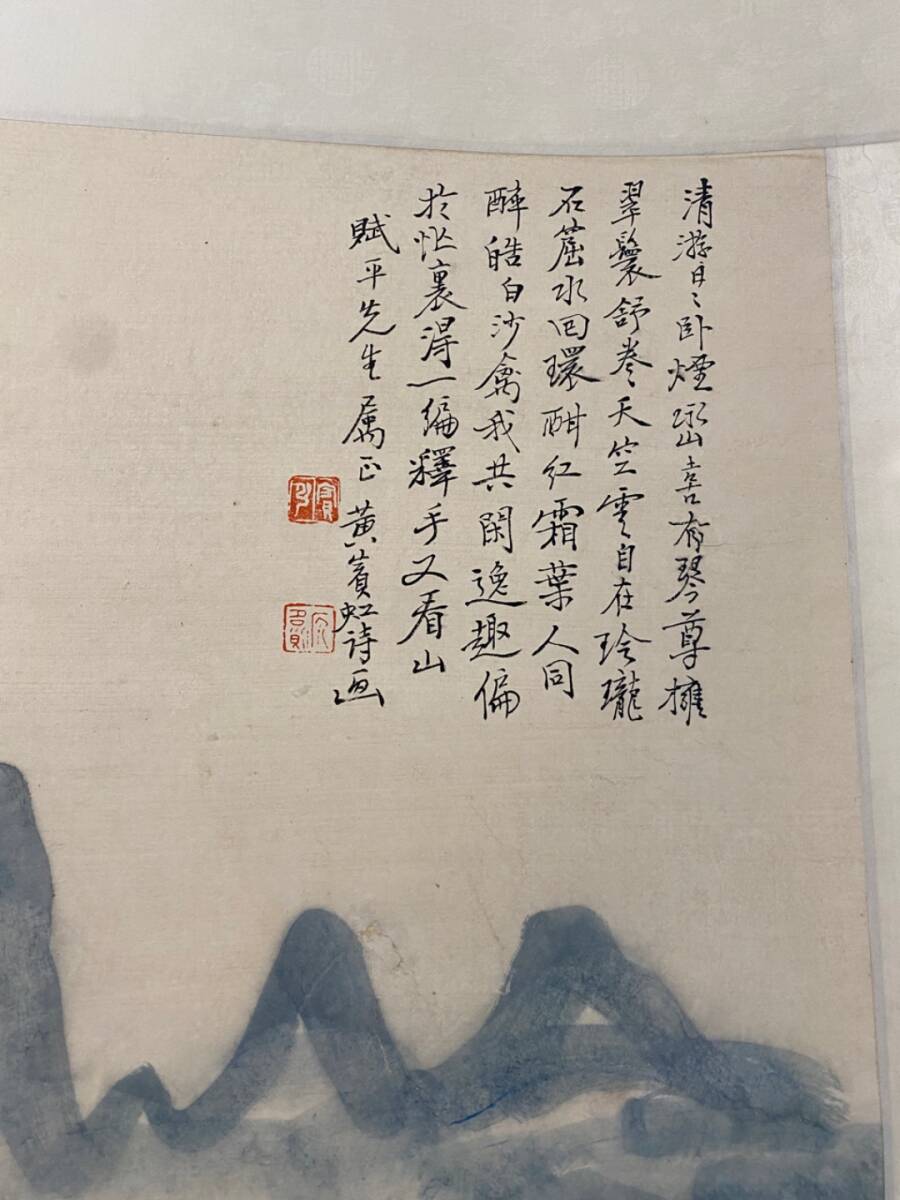 清游日〻卧煙巒喜有琴尊擁
翠鬟舒卷天空雲自在玲瓏
石窟水回環酣紅霜葉人同
醉皓白沙禽我共閑逸趣偏
於忙裏得一編釋手又看山
賦平先生属正 黄賓虹詩画